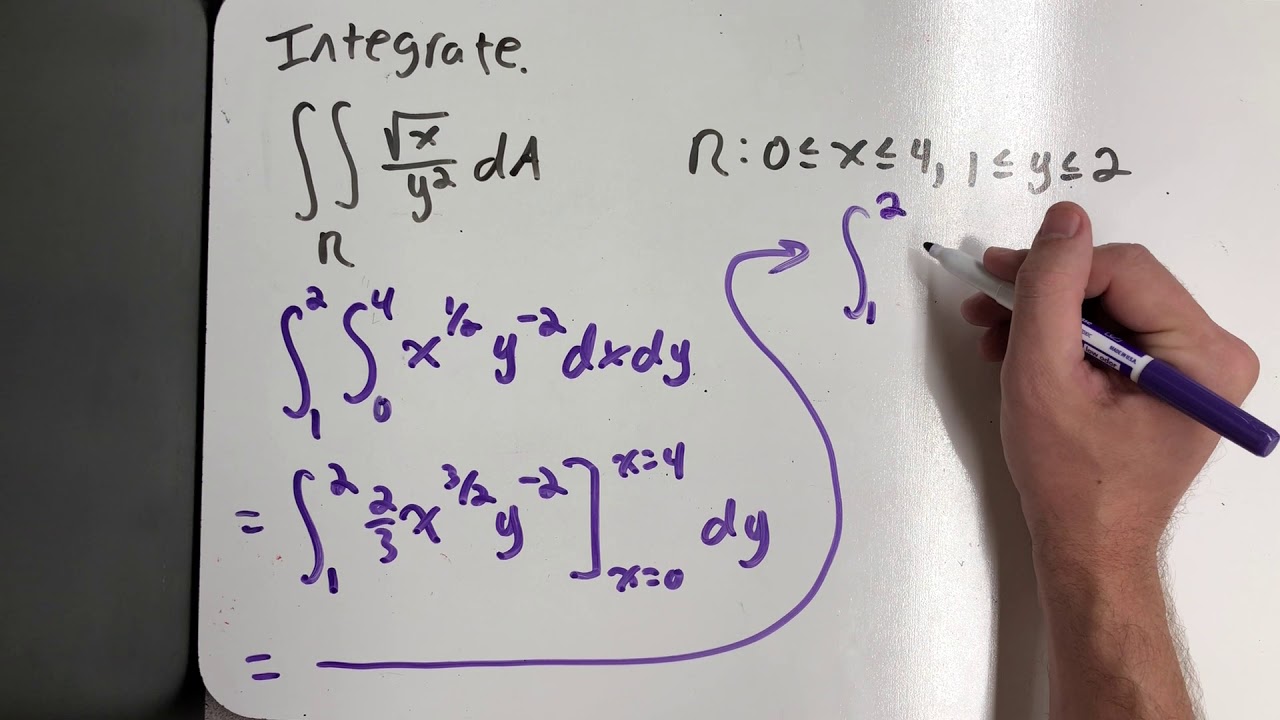 Integrate.
∬_R √x/y² dA
R: 0 ≤ x ≤ 4, 1 ≤ y ≤ 2
∫₁² ∫₀⁴ x^(1/2) y^(-2) dx dy
= ∫₁² 2/3 x^(3/2) y^(-2) ]_(x=0)^(x=4) dy
=
∫₁²